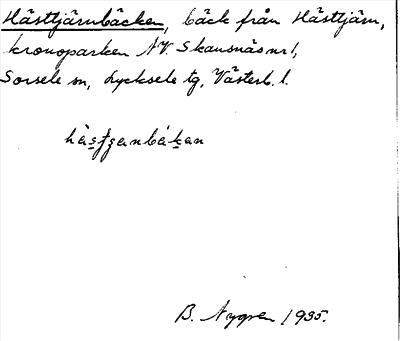 Hästtjärnbäcken, bäck från Hästtjärn,
kronoparken NV. Skansnäs nr 1,
Sorsele sn, Lycksele tg, Västerb. l.
B. Nygren 1935.